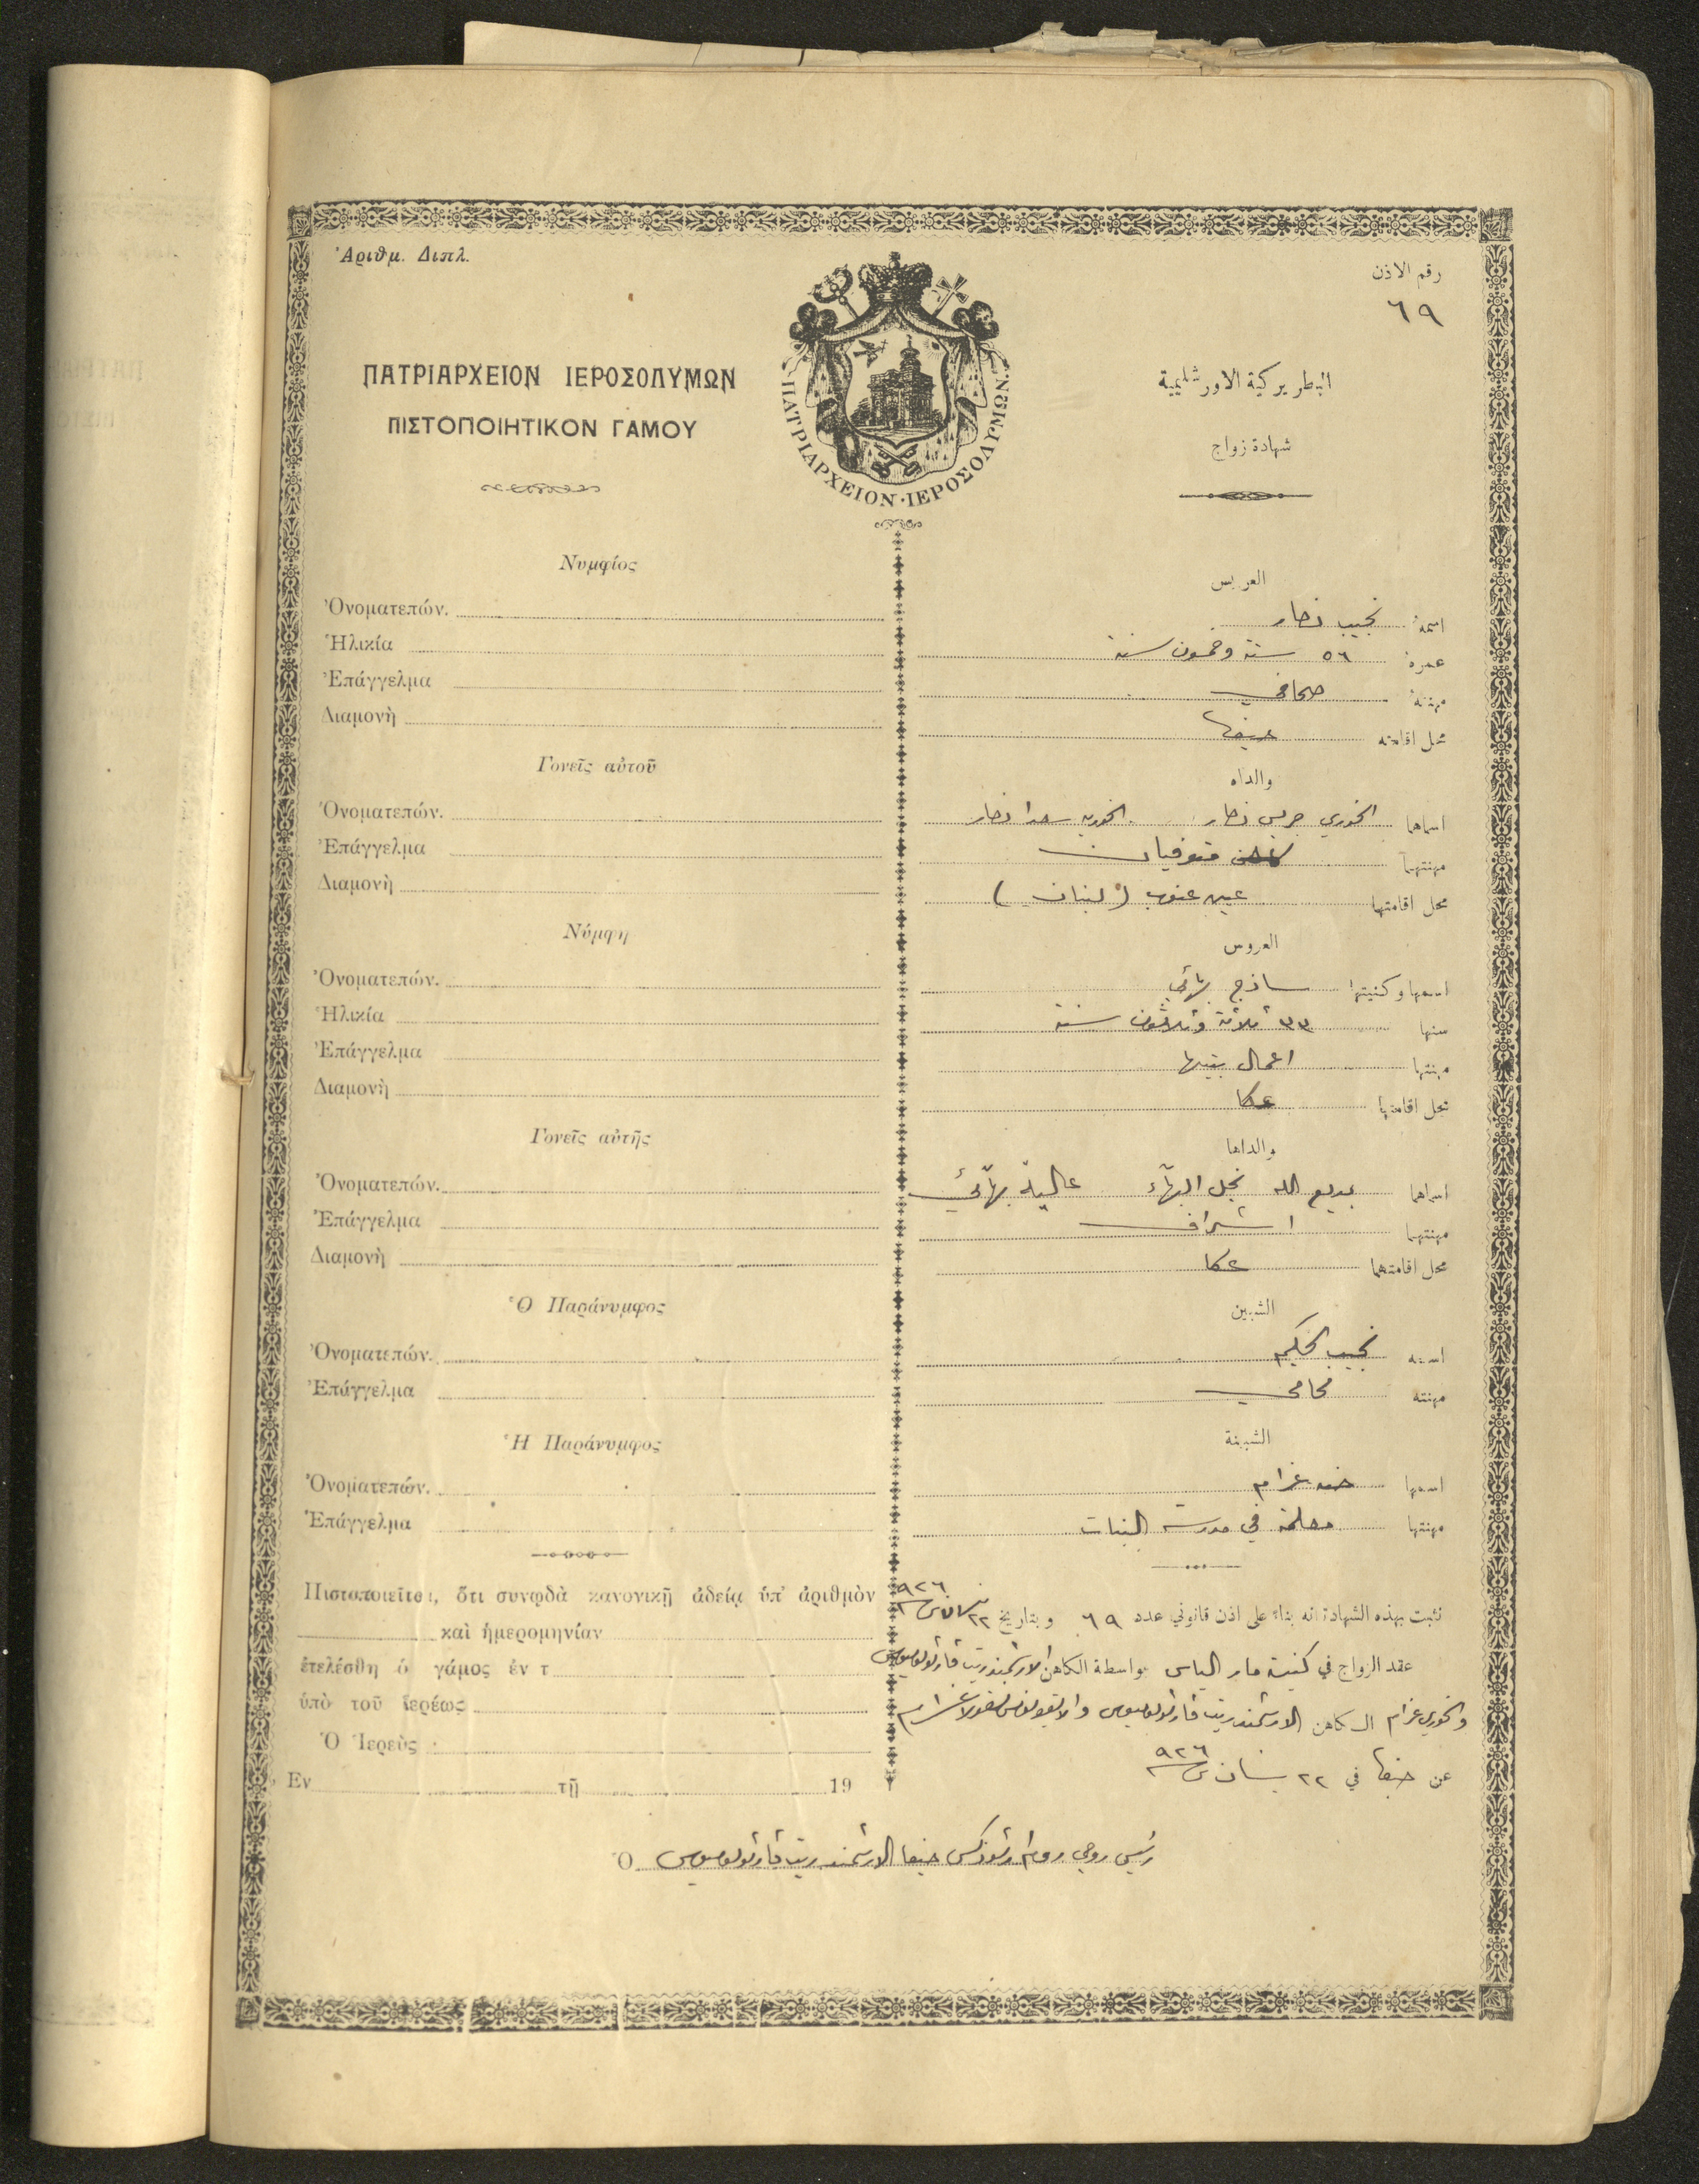 Ἀριθμ. Διπλ.
رقم الاذن
٦٩
ΠΑΤΡΙΑΡΧΕΙΟΝ ΙΕΡΟΣΟΛΥΜΩΝ
ΠΙΣΤΟΠΟΙΗΤΙΚΟΝ ΓΑΜΟΥ
ΠΑΤΡΙΑΡΧΕΙΟΝ·ΙΕΡΟΣΟΛΥΜΩΝ.
البطريركية الاورشليمية
شهادة زواج
Νυμφίος
Ὀνοματεπών.
Ἡλικία
Ἐπάγγελμα
Διαμονὴ
Γονεῖς αὐτοῦ
Ὀνοματεπών.
Ἐπάγγελμα
Διαμονὴ
Νύμφη
Ὀνοματεπών.
Ἡλικία
Ἐπάγγελμα
Διαμονὴ
Γονεῖς αὐτῆς
Ὀνοματεπών.
Ἐπάγγελμα
Διαμονὴ
Ὁ Παράνυμφος
Ὀνοματεπών.
Ἐπάγγελμα
Ἡ Παράνυμφος
Ὀνοματεπών.
Ἐπάγγελμα
Πιστοποιεῖται, ὅτι συνῳδὰ κανονικῇ ἀδείᾳ ὑπ' ἀριθμὸν
καὶ ἡμερομηνίαν
ἐτελέσθη ὁ γάμος ἐν τ
ὑπὸ τοῦ ἱερέως
Ὁ Ἱερεὺς
Ἐν τῇ 19
العريس
اسمهُ نجيب نصار
عمرهُ ٥٦ ستة وخمسون سنة
مهنتهُ صحافي
محل اقامته حيفا
والداه
اسماهما الخوري جرجس نصار الخوريه سعدا نصار
مهنتهما متوفيان
محل اقامتهما عين عنوب (لبنان)
العروس
اسمها وكنيتها ساذج بهائي
سنها ٣٣ ثلاثة وثلاثون سنة
مهنتها اعمال بيتها
محل اقامتها عكا
والداها
اسماهما بديع الله نجل البهاء عالية بهائي
مهنتهما اشراف
محل اقامتهما عكا
الشبين
اسمه نجيب الحكيم
مهنته محامي
الشبينة
اسمها حنه عزام
مهنتها معلمة في مدرسة البنات
نثبت بهذه الشهادة انه بناء على اذن قانوني عدد ٦٩ وبتاريخ ٢٢ نيسان سنة ٩٢٦
عقد الزواج في كنيسة مار الياس بواسطة الكاهن الارشمندريت فارثولوميوس
والخوري عزام الكاهن الارشمندريت فارثولوميوس والايقونوموس نقولا عزام
عن حيفا في ٢٢ نيسان سنة ٩٢٦
Ὁ رئيس روحي روم ارثوذكس حيفا الارشمندريت فارثولوميوس